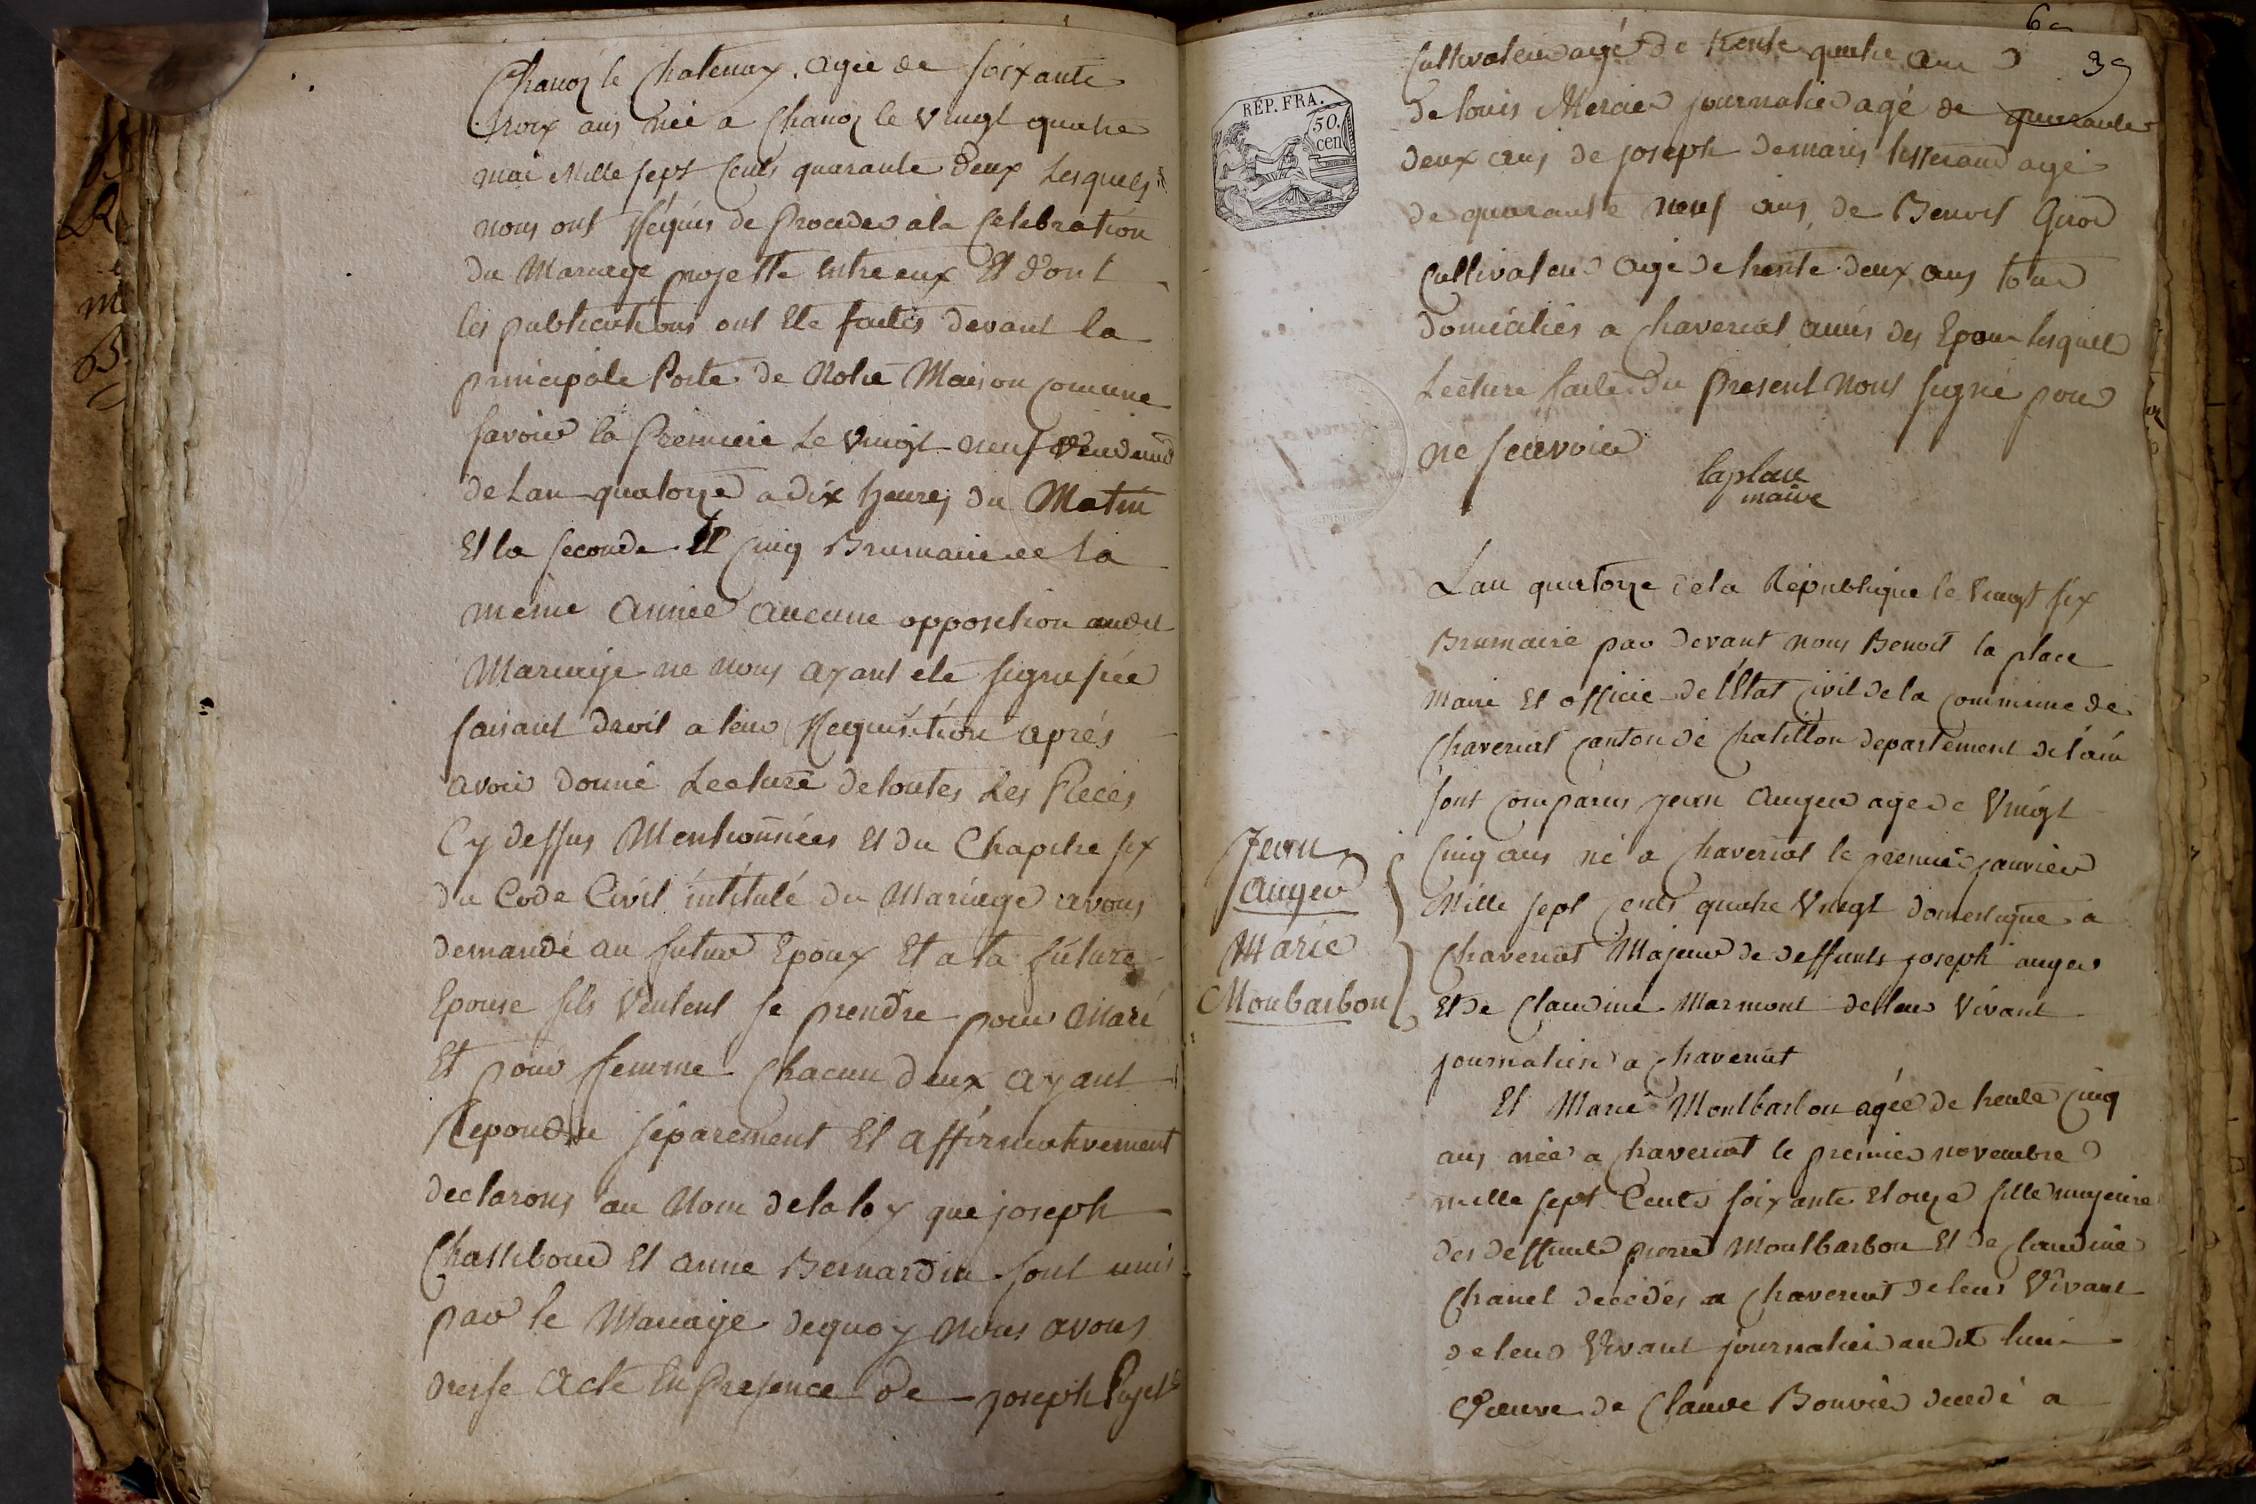 Chanoz le Chatenay, agée de soixante
troix ans née a Chanoz le vingt quatre
mai Mille sept Cents quarante deux Lesquels
nous ont Réquis de Proceder a la Celebration
du Mariage projetté entre eux Et dont
les publications ont Eté faites devant la
principale Porte de Notre Maison comune
savoir la Premiere Le vingt neuf Vendem
de Lan quatorze a dix heures du Matin
Et la seconde Le Cinq Brumaire de la
même année aucune opposition audit
Mariage ne nous ayant été signifiée
faisant droit a leur Requisition aprés
avoir donné Lecture de toutes Les Pieces
Cy dessus Mentionnées Et du Chapitre six
du Code Civil intitulé du Mariage avons
demandé au futur Epoux Et a la future
Epouse sils Veulent se prendre pour Mari
Et pour femme Chacun deux ayant
Repondu séparement Et affirmativement
declarons au Nom de la loy que joseph
Et anne Bernardin sont unis
par le Mariage dequoy nous avons
dresse Acte En Presence de joseph
69
39
Cultivateur agé de trente quatre ans
de louis Mercier journalier agé de quarante
deux ans de joseph demaris tisserand agé
de quarante neuf ans, de Benoit Girod
Cultivateur agé de trente deux ans tous
domiciliés a Chaveriat amis des Epoux lesquels
Lecture faite du present nont signé pour
ne scavoir
laplace
maire
REP. FRA.
50
cen
Lan quatorze de la République le vingt six
Brumaire par devant nous Benoit la place
Maire Et officie de l'Etat Civil de la commune de
Chaveriat canton de Chatillon departement de l'ain
sont comparus jean auger age de Vingt
Cinq ans né a Chaveriat le premie janvier
Mille sept Cents quatre Vingt domestique a
Chaveriat Majeur de deffunts joseph auger
Et de Claudine Marmont de leur Vivant
journalier a Chaveriat
Jean
auger
Marie
Monbarbon
Et Marie Montbarbon agée de trente Cinq
ans née a Chaveriat le premier novembre
mille sept Cents soixante Et onze fille majeure
des deffunts pierre Montbarbon Et de Claudine
Chanel decedés a Chaveriat de leur Vivant
de leur Vivant journalier audit lieu
Veuve de Claude Bouvier decedé a